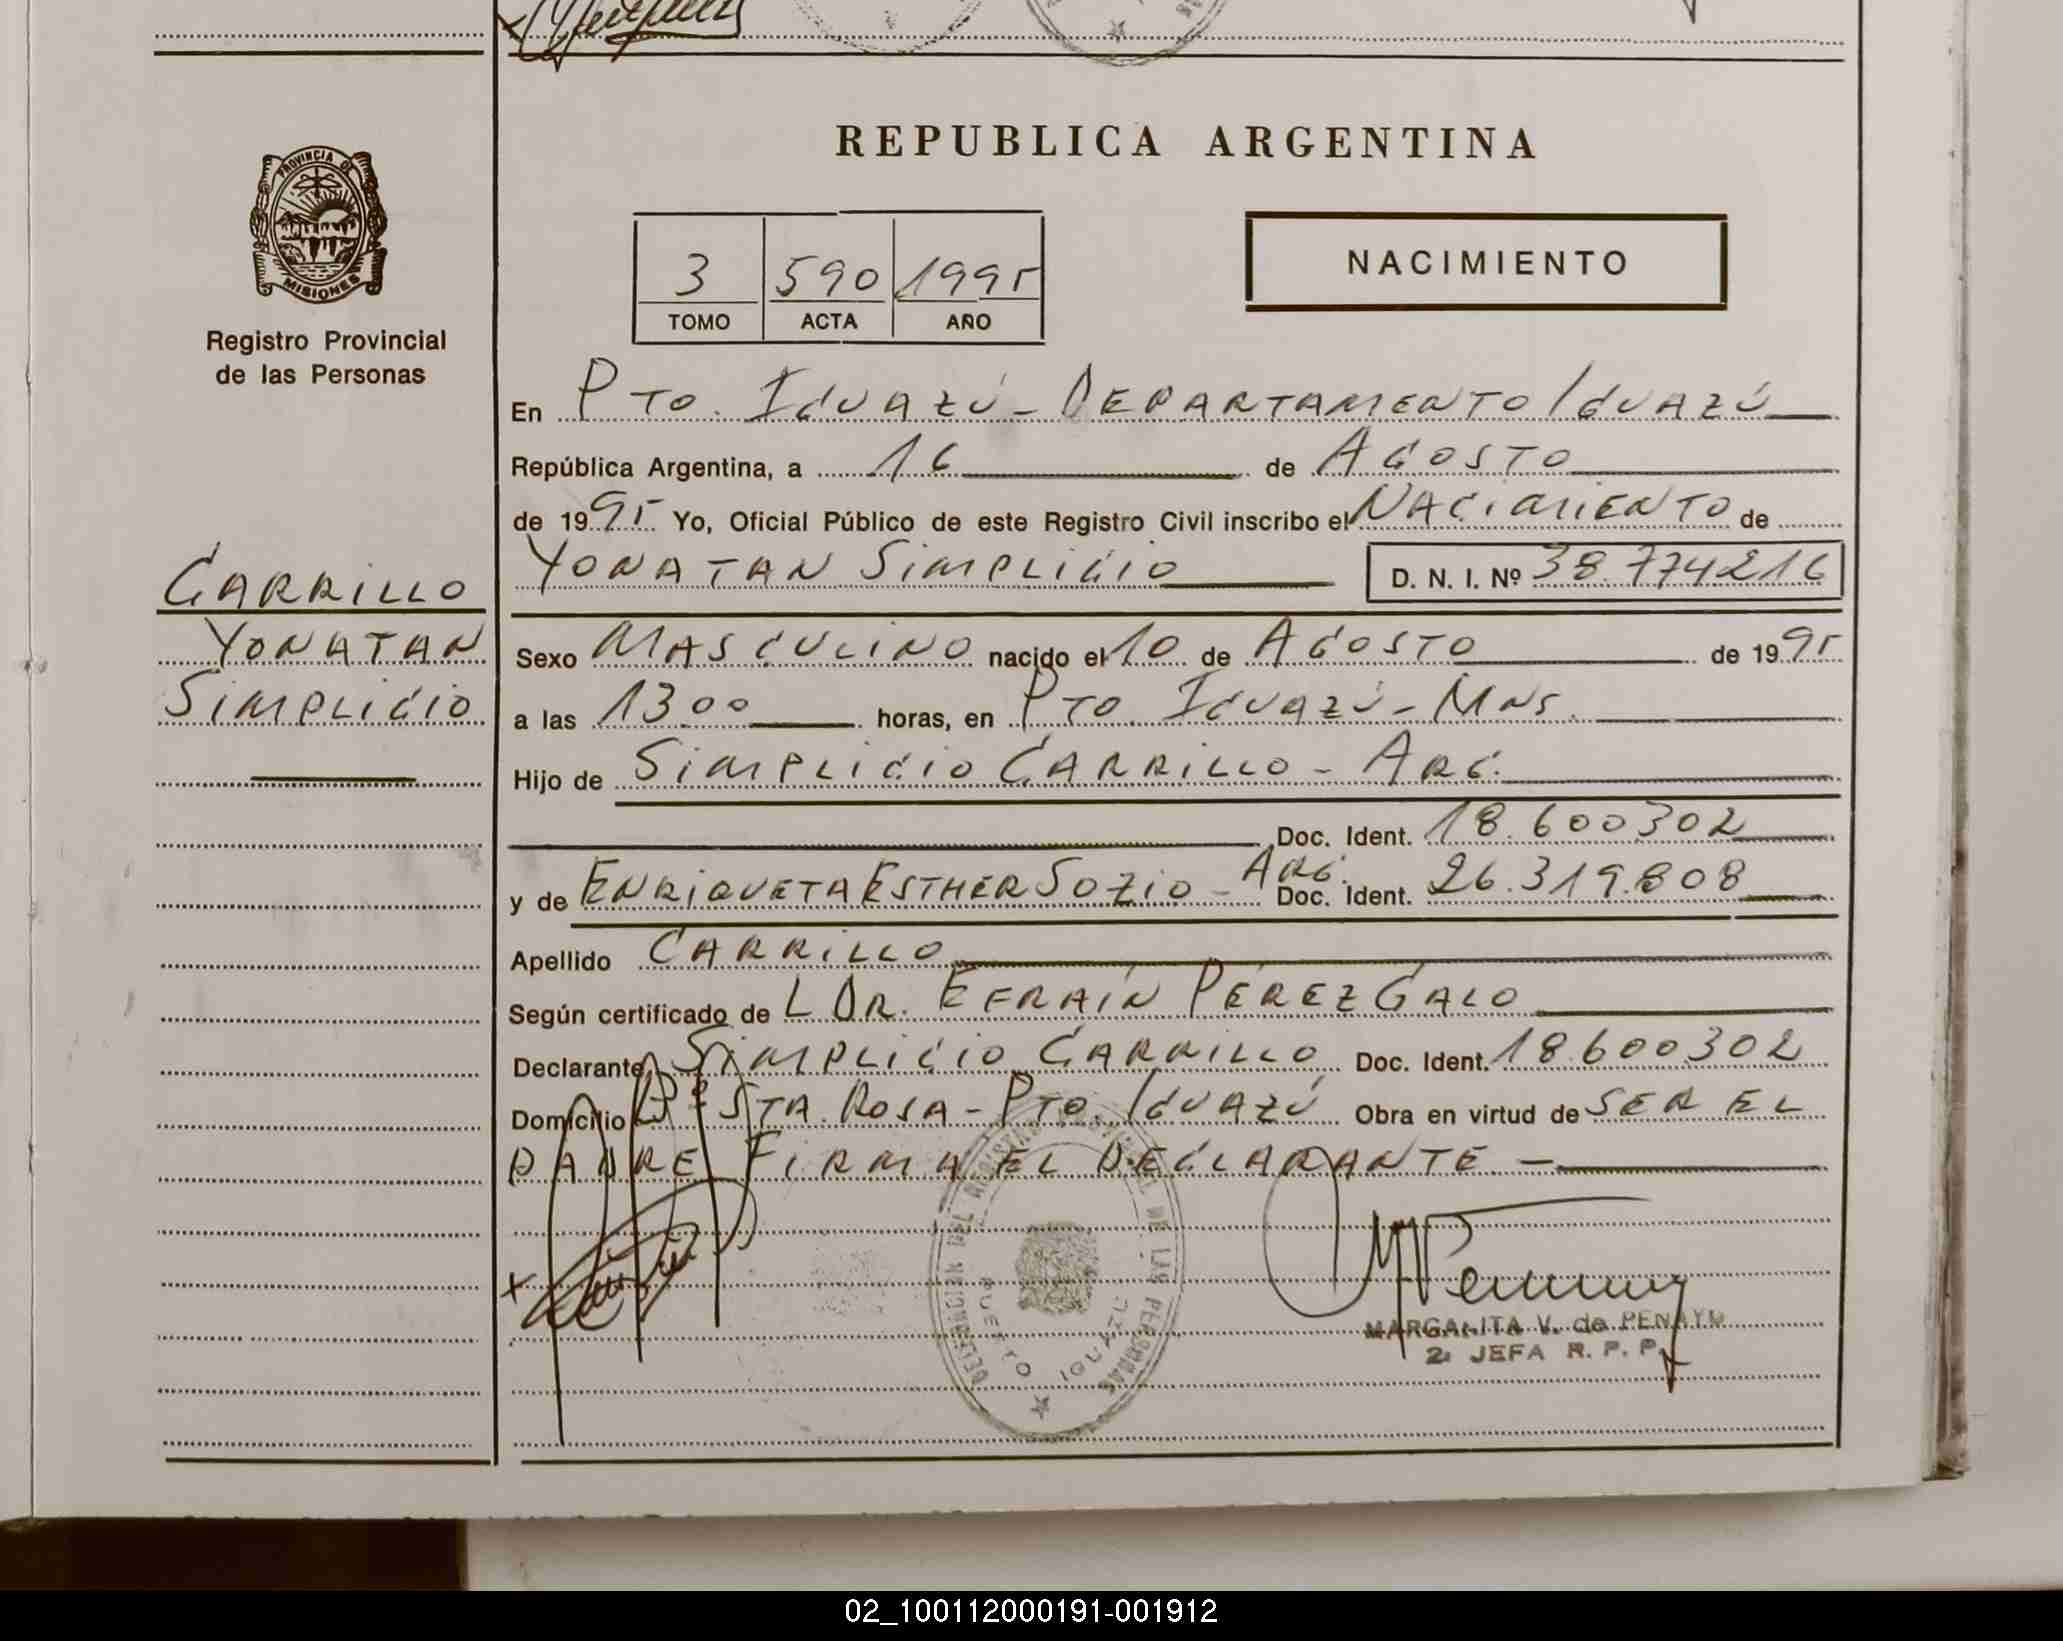 REPUBLICA ARGENTINA
PROVINCIA DE
MISIONES
Registro Provincial
de las Personas
3 590 1995
TOMO ACTA AÑO
NACIMIENTO
En PTO. IGUAZÚ - DEPARTAMENTO IGUAZÚ
República Argentina, a 16 de AGOSTO
de 1995 Yo, Oficial Público de este Registro Civil inscribo el NACIMIENTO de
YONATAN SIMPLICIO D. N. I. Nº 38.774216
CARRILLO
YONATAN
SIMPLICIO
Sexo MASCULINO nacido el 10 de AGOSTO de 1995
a las 13.00 horas, en PTO. IGUAZÚ - MNS.
Hijo de SIMPLICIO CARRILLO - ARG.
Doc. Ident. 18.600302
y de ENRIQUETA ESTHER SOZIO - ARG. Doc. Ident. 26.319.808
Apellido CARRILLO
Según certificado de L DR. EFRAÍN PÉREZ GALO
Declarante SIMPLICIO CARRILLO Doc. Ident. 18.600302
Domicilio Bº STA. ROSA - PTO. IGUAZÚ Obra en virtud de SER EL
PADRE FIRMA EL DECLARANTE -
DELEGACION DEL REGISTRO PROVINCIAL DE LAS PERSONAS
PUERTO IGUAZU
MARGARITA V. de PENAYO
2ª JEFA R. P. P.
02_100112000191-001912